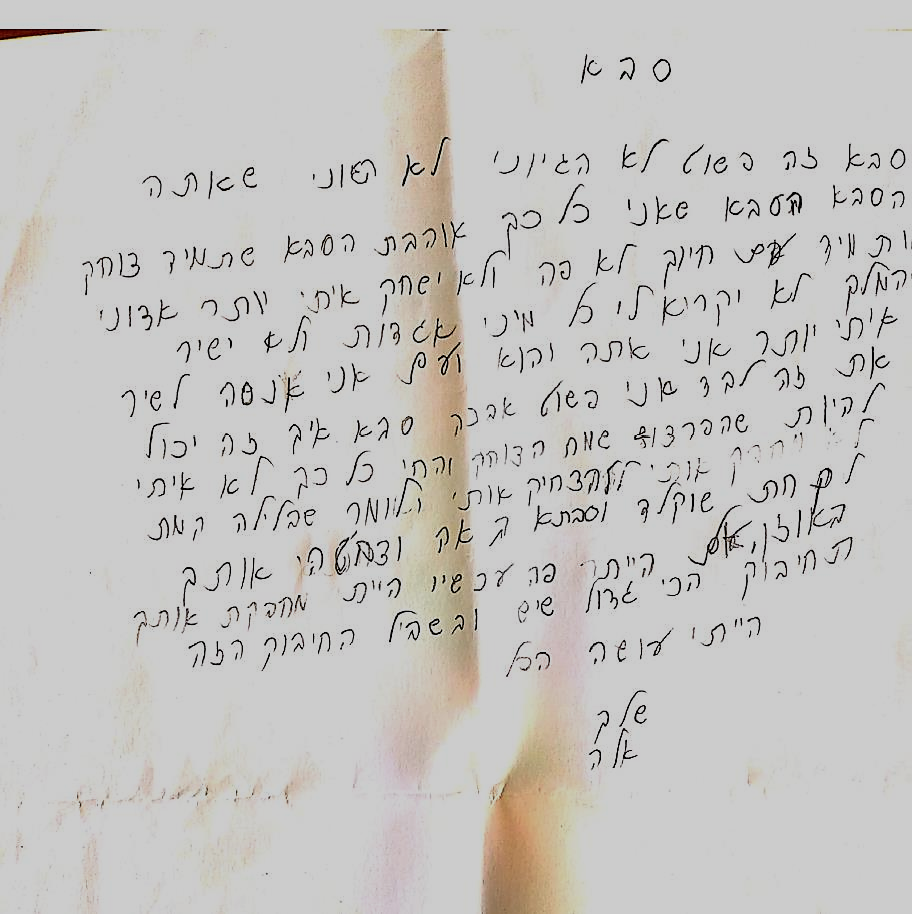 סבא
סבא זה פשוט לא הגיוני לא הגוני שאתה
הסבא הסבא שאני כל כך אוהבת הסבא שתמיד צוחק
ותמיד עם חיוך לא פה ולא ישחק איתי יותר אדוני
המלך לא יקריא לי כל מיני אגדות ולא ישיר
איתי יותר אני אתה והוא ועם אני אנסה לשיר
את זה לבד אני פשוט אבכה סבא איך זה יכול
להיות שהפרצוף שמח הצוחק והחי כל כך לא איתי
לא יחבק אותי להצחיק אותי ולומר שבלילה קמת
לקחת שוקלד וסבתא באה וצבטה אותך
באוזן הייתה פה עכשיו הייתי מחבקת אותך
תחיבוק הכי גדול שיש ובשביל החיבוק הזה
הייתי עושה הכל
שלך
אלה